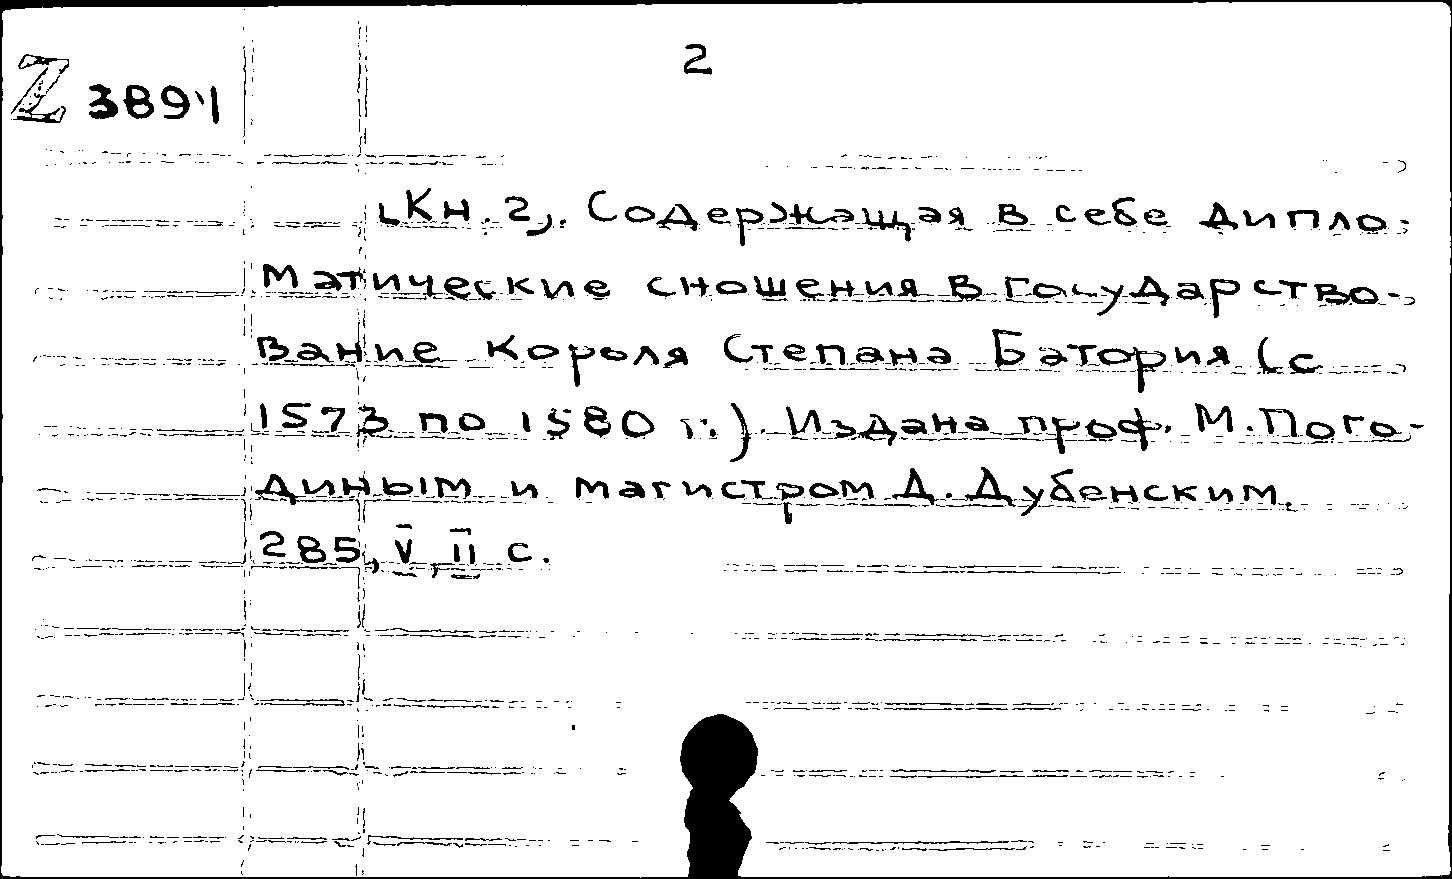 2
Z 3894
[Кн. 2]. Содержащая в себе дипло-
матические сношения в государство-
вание короля Степана Батория (с
1573 по 1580 г.). Издана проф. М. Пого-
диным и магистром Д. Дубенским.
285, V, II с.